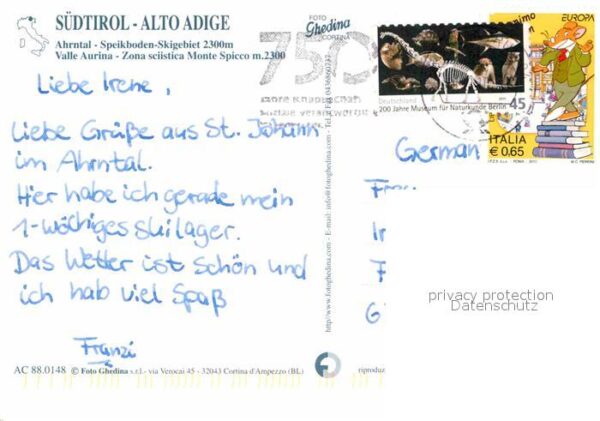 SÜDTIROL - ALTO ADIGE
Ahrntal - Speikboden-Skigebiet 2300m
Valle Aurina - Zona sciistica Monte Spicco m.2300
FOTO
Ghedina
CORTINA
Liebe Irene,
Liebe Grüße aus St. Johann
im Ahrntal.
Hier habe ich gerade mein
1-wöchiges Skilager.
Das Wetter ist schön und
ich hab viel Spaß
Franzi
AC 88.0148 © Foto Ghedina s.r.l. - via Verocai 45 - 32043 Cortina d'Ampezzo (BL)
http://www.fotoghedina.com - E-mail: info@fotoghedina.com
750
Jahre Knappschaft
Deutschland
200 Jahre Museum für Naturkunde Berlin
45
EUROPA
ITALIA
€ 0.65
German
privacy protection
Datenschutz